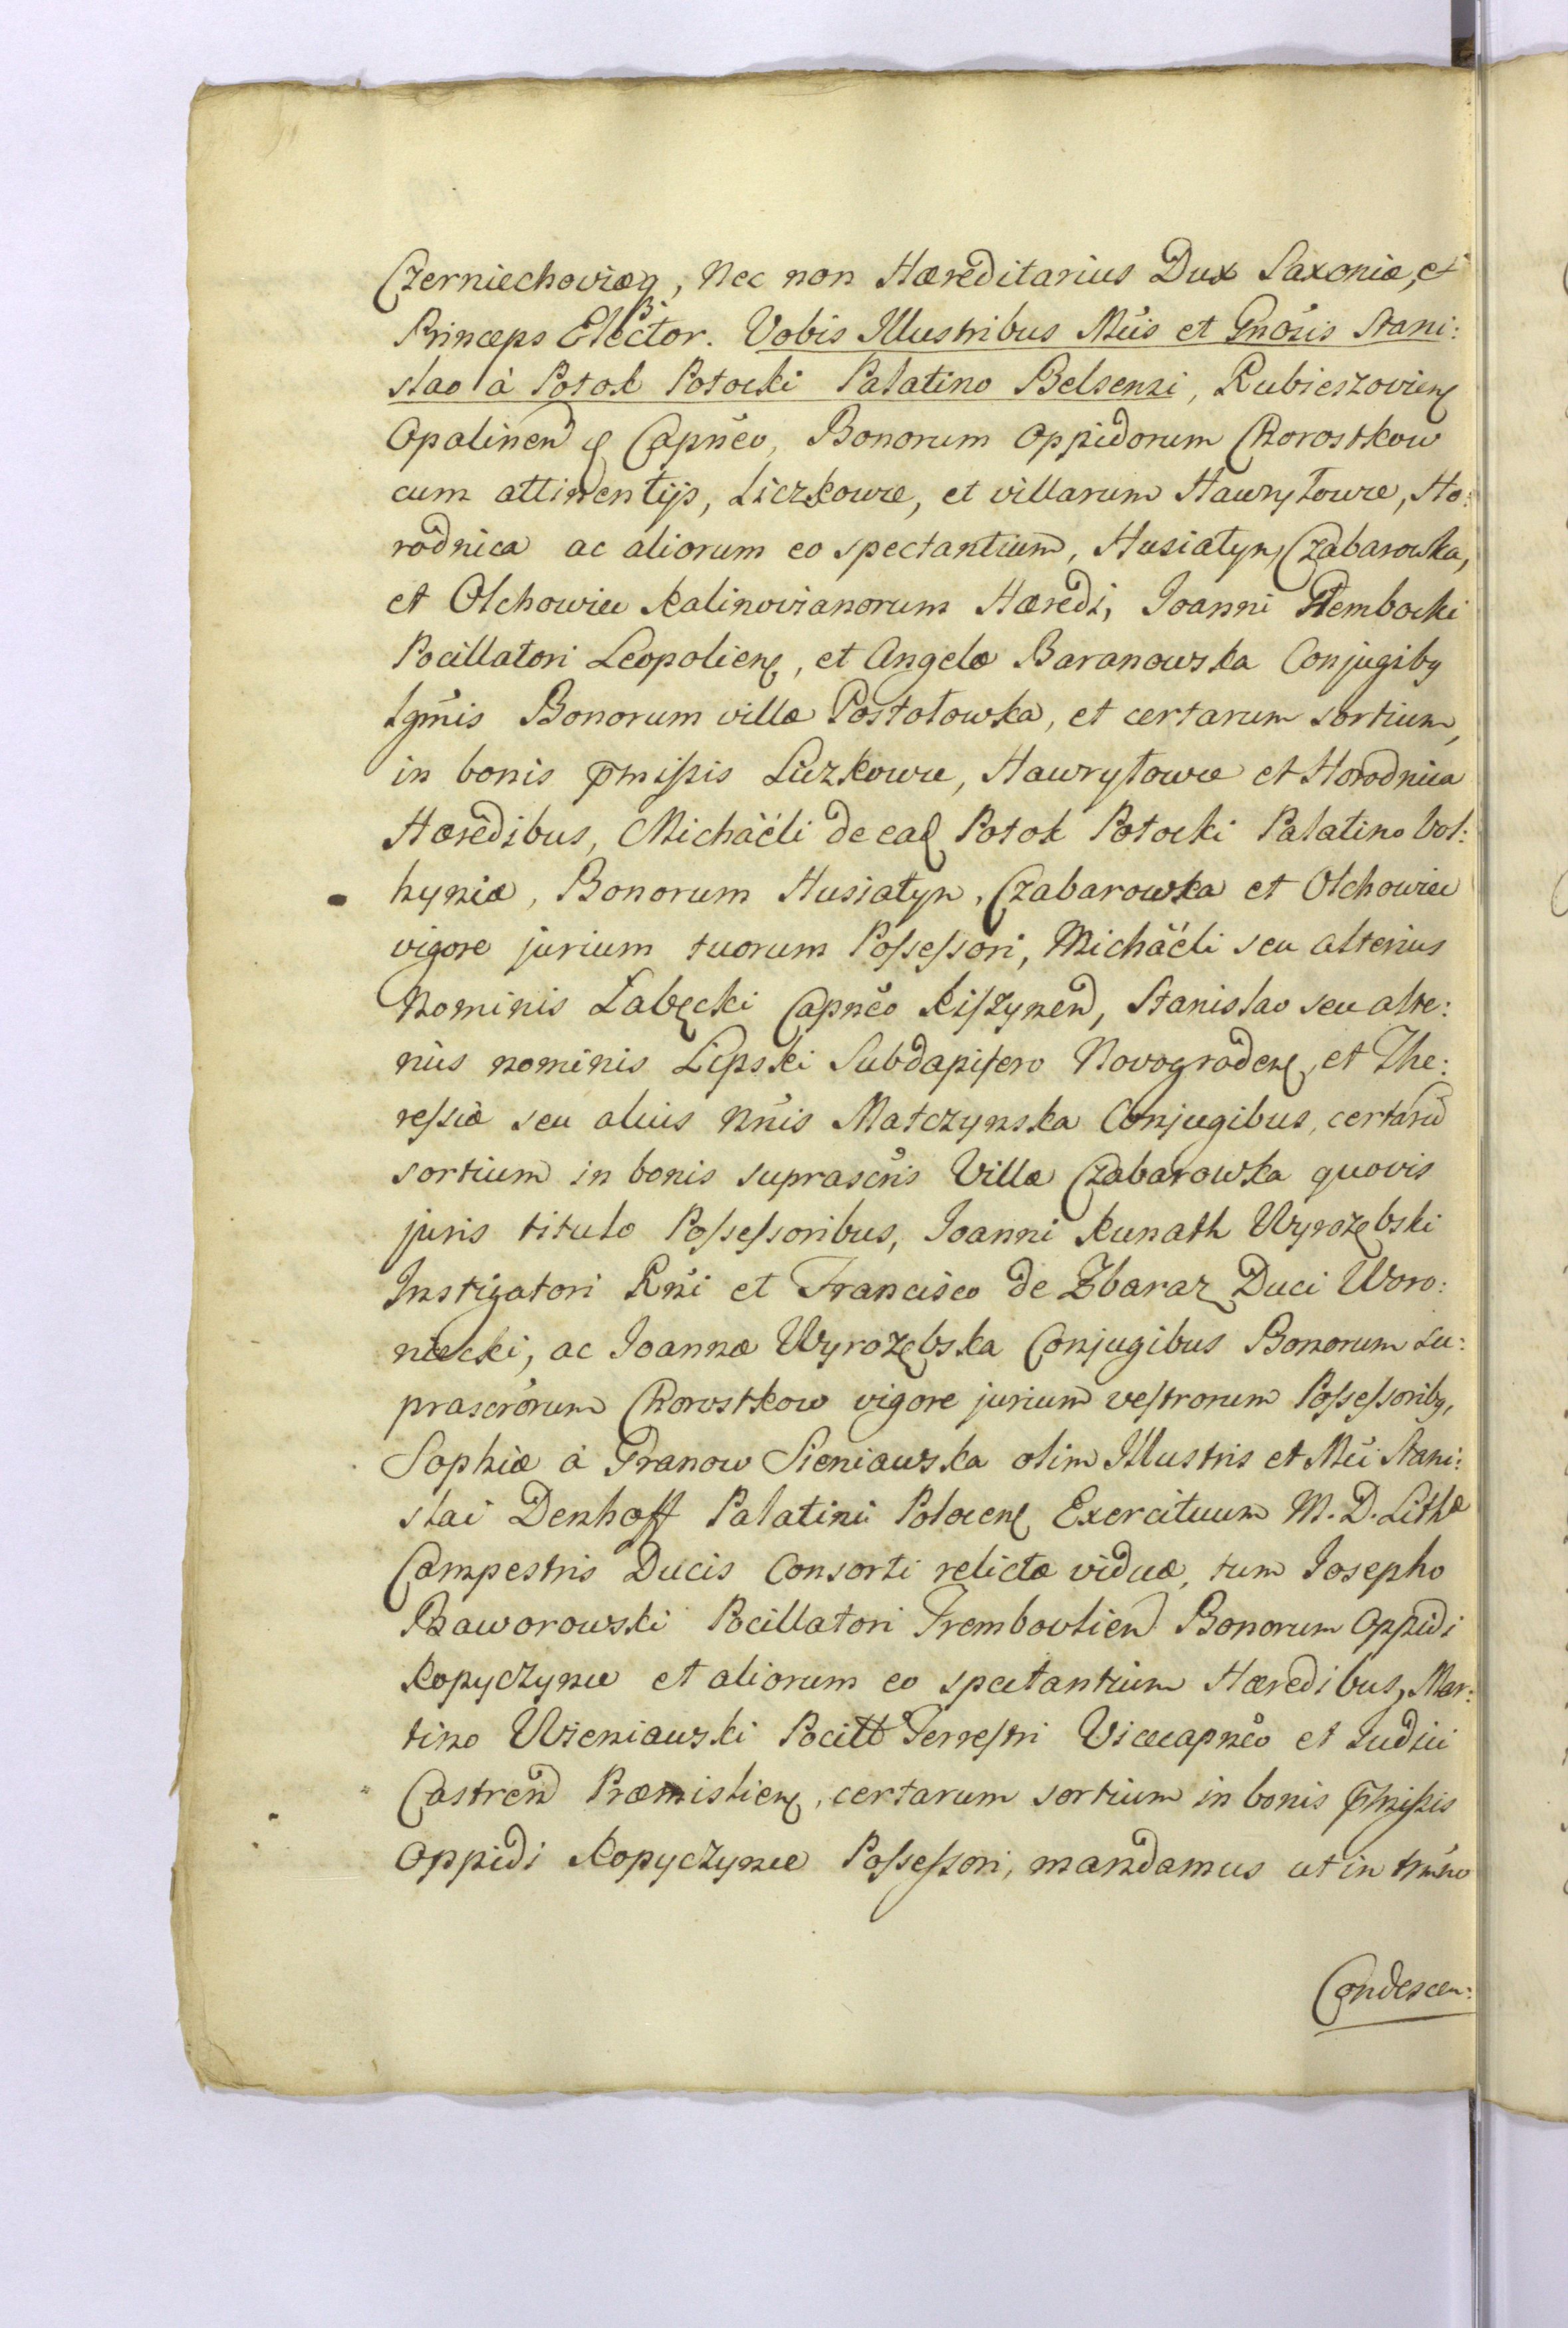 Czerniechoviæq, Nec non Hæreditarius Dux Saxoniæ, et
Princeps Elector. Vobis Illustribus Mẽis et Gnõsis Stani:
slao à Potok Potocki Palatino Belsensi, Rubieszovien
Opalinen & Capnẽo, Bonorum Oppidorum Chorostkow
cum attinentijs, Liczkowce, et villarum Hawryłowce, Ho:
rodnica ac aliorum eo spectantium, Husiatyn, Czabarowka,
et Olchowiec Kalinovianorum Hæredi, Joanni Dembocki
Pocillatori Leopolien, et Angelæ Baranowska Conjugibq
Lgmis Bonorum villæ Postołowka, et certarum sortium,
in bonis pmissis Liczkowce, Hawryłowce et Horodnica
Hæredibus, Michaëli de ead Potok Potocki Palatino Vol:
hyniæ, Bonorum Husiatyn, Czabarowka et Olchowiec
vigore jurium tuorum Possessori, Michaëli seu alterius
Nominis Łabęcki Capnẽo Kiszynen, Stanislao seu alte:
rius nominis Lipski Subdapifero Novograden, et The:
ressiæ seu alius Nnis Matczynska Conjugibus, certarũ
sortium in bonis suprascris Villæ Czabarowka quovis
juris titulo Possessoribus, Joanni Kunath Wyrozębski
Instigatori Rni et Francisco de Zbaraz Duci Woro:
niecki, ac Joannæ Wyrozębska Conjugibus Bonorum Su:
prascrorum Chorostkow vigore jurium vestrorum Possessoribq,
Sophiæ à Granow Sieniawska olim Illustris et Mci Stani:
slai Denhoff Palatini Polocen Exercituum M. D. Lithæ
Campestris Ducis Consorti relictæ viduæ, tum Josepho
Baworowski Pocillatori Trembovlien Bonorum Oppidi
Kopyczynce et aliorum eo spectantium Hæredibus, Mar:
tino Wieniawski Pocill Terrestri Vicecapnẽo et Judici
Castren Præmislien, certarum sortium in bonis pmissis
Oppidi Kopyczynce Possessori, mandamus ut in tmno
Condescen: